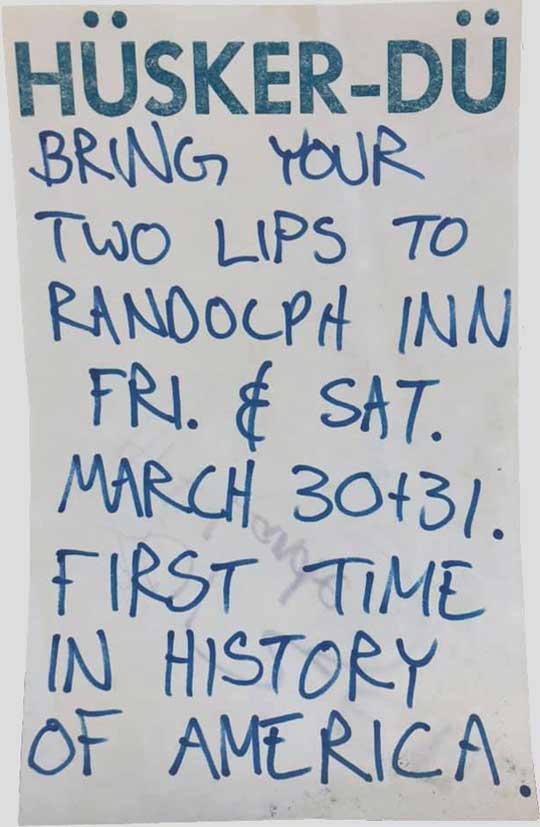 HÜSKER-DÜ
BRING YOUR
TWO LIPS TO
RANDOLPH INN
FRI. & SAT.
MARCH 30+31.
FIRST TIME
IN HISTORY
OF AMERICA.